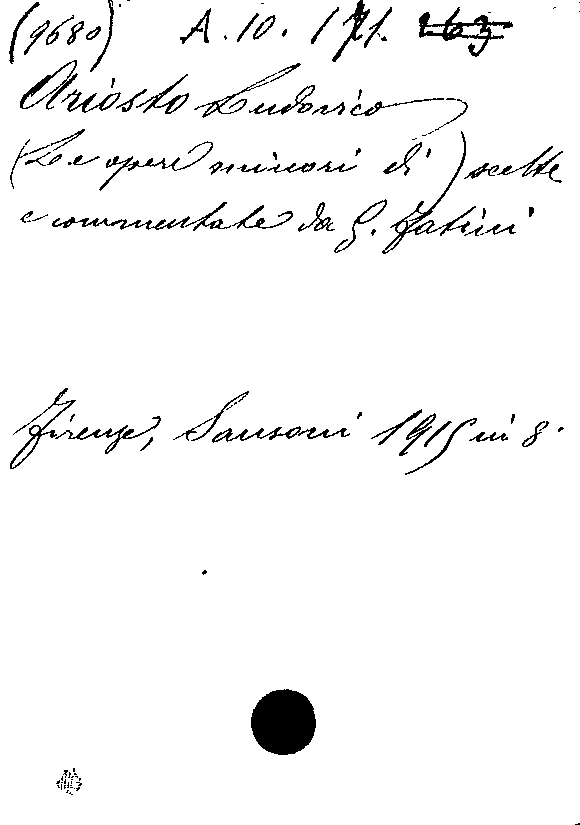 (9680) A. 10. 171. 263
Ariosto Ludovico
(Le opere minori di) scelte
e commentate da G. Fatini
Firenze, Sansoni 1915 in 8.